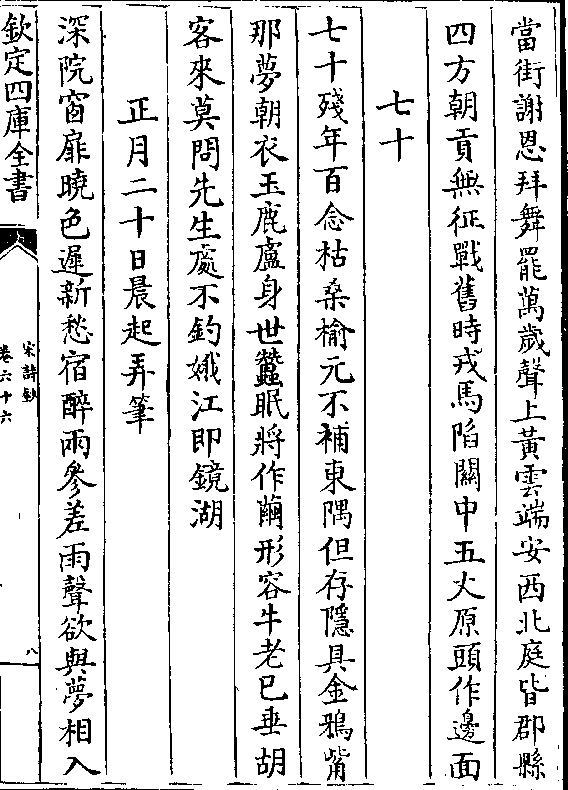 當街謝恩拜舞罷萬歲聲上黃雲端安西北庭皆郡縣
四方朝貢無征戰舊時戎馬陷關中五丈原頭作邊面
七十
七十殘年百念枯桑榆元不補東隅但存隱具金鴉觜
那夢朝衣玉鹿盧身世蠶眠將作繭形容牛老已垂胡
客來莫問先生處不釣娥江即鏡湖
正月二十日晨起弄筆
深院窗扉曉色遲新愁宿醉兩參差雨聲欲與夢相入
欽定四庫全書
宋詩鈔
卷六十六
八